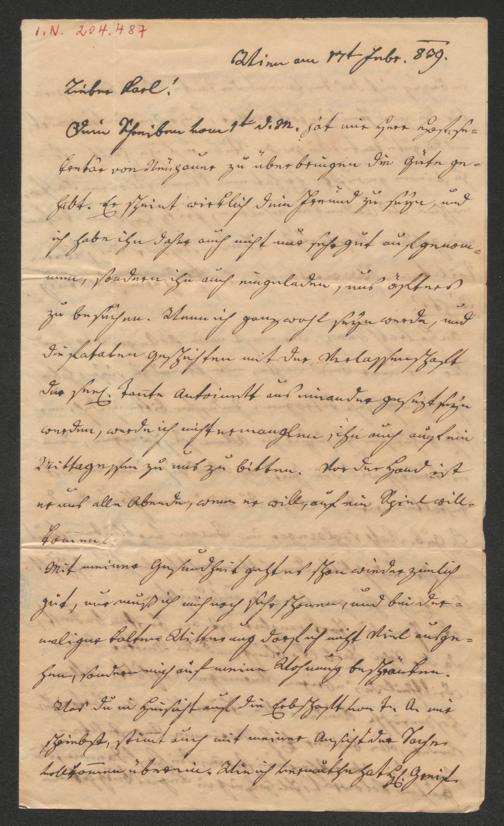 I.N. 204.487
Wien am 17t Febr. 839.
Lieber Karl!
Dein Schreiben vom 9t d. M. hat mir Herr
von zu überbringen die Güte ge-
habt. Er scheint wirklich dein Freund zu seyn, und
ich habe ihn daher auch nicht nur sehr gut aufgenom-
men, sondern ihn auch eingeladen, uns öfters
zu besuchen. Wenn ich ganz wohl seyn werde, und
die fatalen Geschichten mit der Verlassenschaft
der seel. Tante Antoinett auseinander gesetzt seyn
werden, werde ich nicht ermanglen, ihn auch auf ein
Mittagessen zu uns zu bitten. Vor der Hand ist
er uns alle Abende, wenn er will, auf ein Spiel will-
kommen.
Mit meiner Gesundheit geht es schon wieder ziemlich
gut, nur muß ich mich noch sehr schonen, und bei der-
maliger kalter Witterung darf ich nicht viel ausge-
hen, sondern mich auf meine Wohnung beschränken.
Was du in Hinsicht auf die Erbschaft von T. A. mir
schreibst, stimmt auch mit meiner Ansicht der Sache
vollkommen überein. Wie ich vermuthe hat